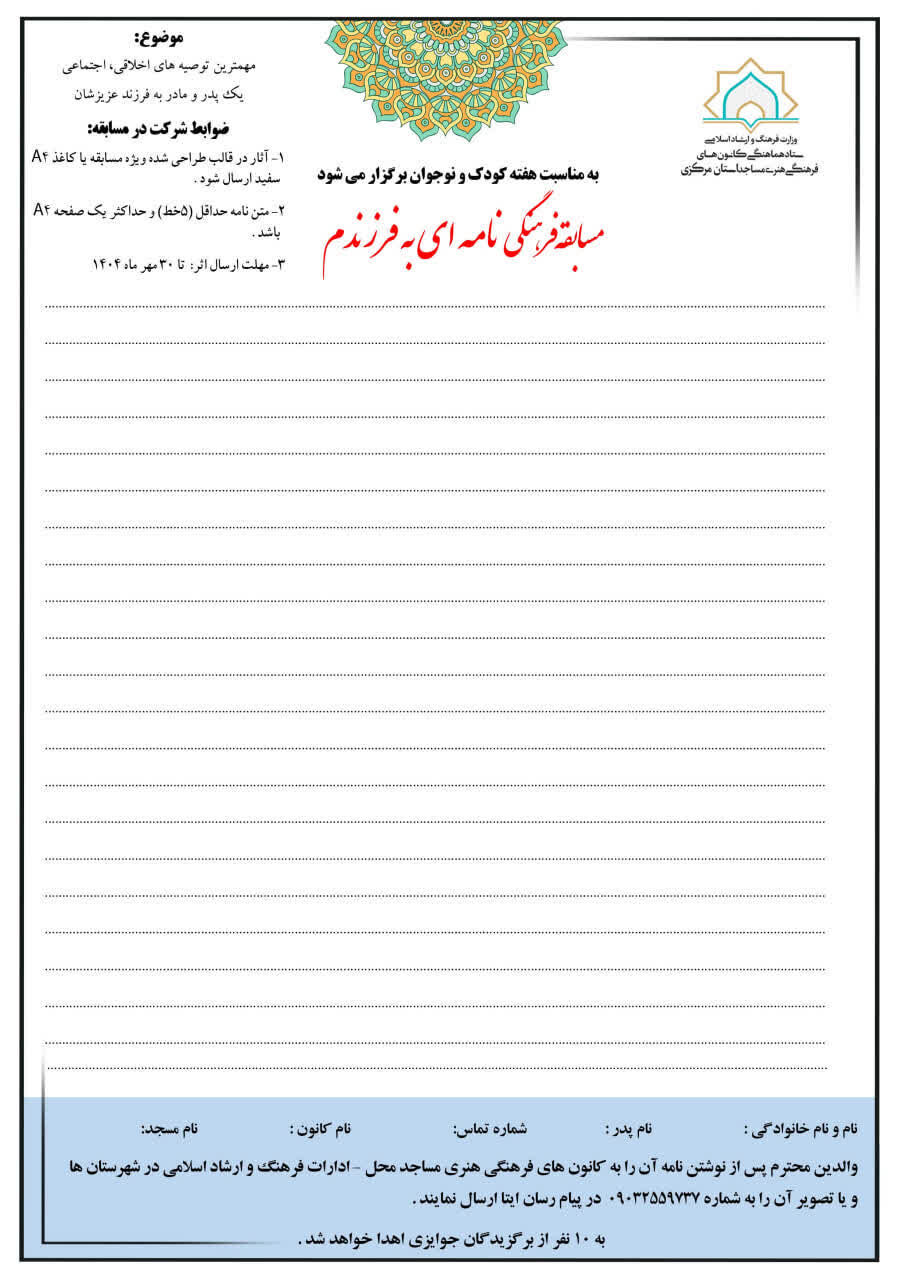 وزارت فرهنگ و ارشاد اسلامی
ستاد هماهنگی کانون های
فرهنگی هنری مساجد استان مرکزی
به مناسبت هفته کودک و نوجوان برگزار می شود
مسابقه فرهنگی نامه ای به فرزندم
موضوع:
مهمترین توصیه های اخلاقی، اجتماعی
یک پدر و مادر به فرزند عزیزشان
ضوابط شرکت در مسابقه:
۱- آثار در قالب طراحی شده ویژه مسابقه یا کاغذ A۴
سفید ارسال شود .
۲- متن نامه حداقل (۵خط) و حداکثر یک صفحه A۴
باشد .
۳- مهلت ارسال اثر: تا ۳۰ مهر ماه ۱۴۰۴
نام و نام خانوادگی : نام پدر : شماره تماس: نام کانون : نام مسجد:
والدین محترم پس از نوشتن نامه آن را به کانون های فرهنگی هنری مساجد محل - ادارات فرهنگ و ارشاد اسلامی در شهرستان ها
و یا تصویر آن را به شماره ۰۹۰۳۲۵۵۹۷۳۷ در پیام رسان ایتا ارسال نمایند .
به ۱۰ نفر از برگزیدگان جوایزی اهدا خواهد شد .